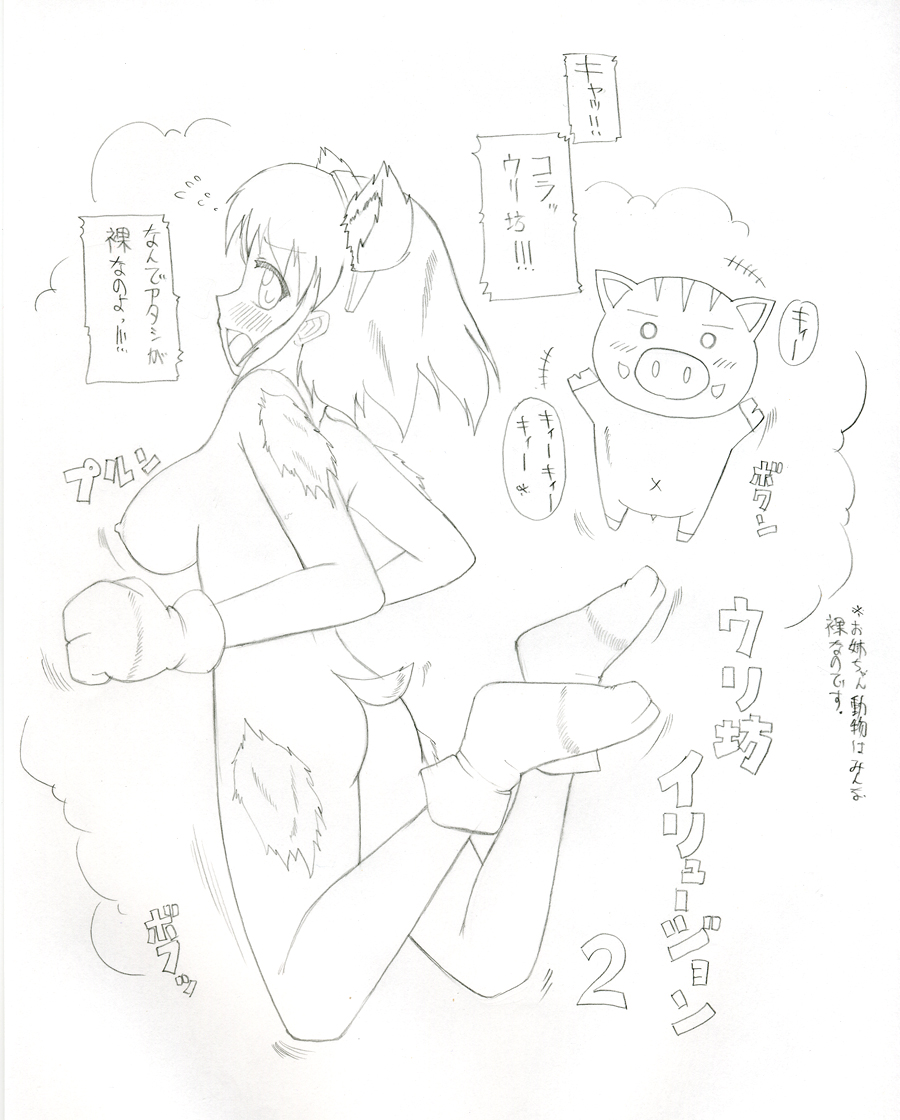 キャッ!!
コラッ
ウリ坊!!!
なんでアタシが
裸なのよっ!!!
キィー
キィーキィー
キィー*
プルン
ボワン
ウリ坊
イリュージョン
2
*お姉ちゃん動物はみんな
裸なのです。
ボフッ